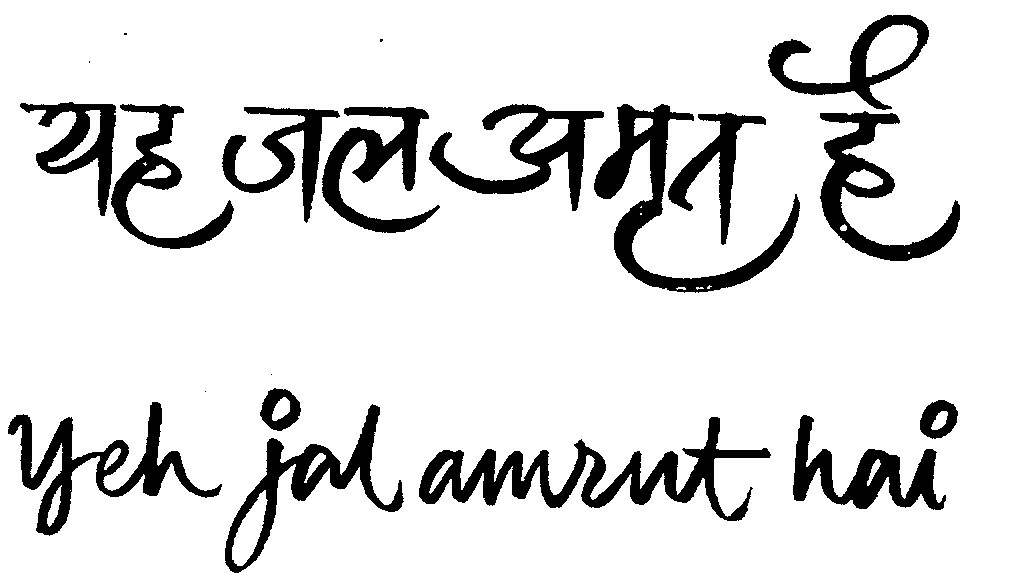 यह जल अमृत है
yeh jal amrut hai